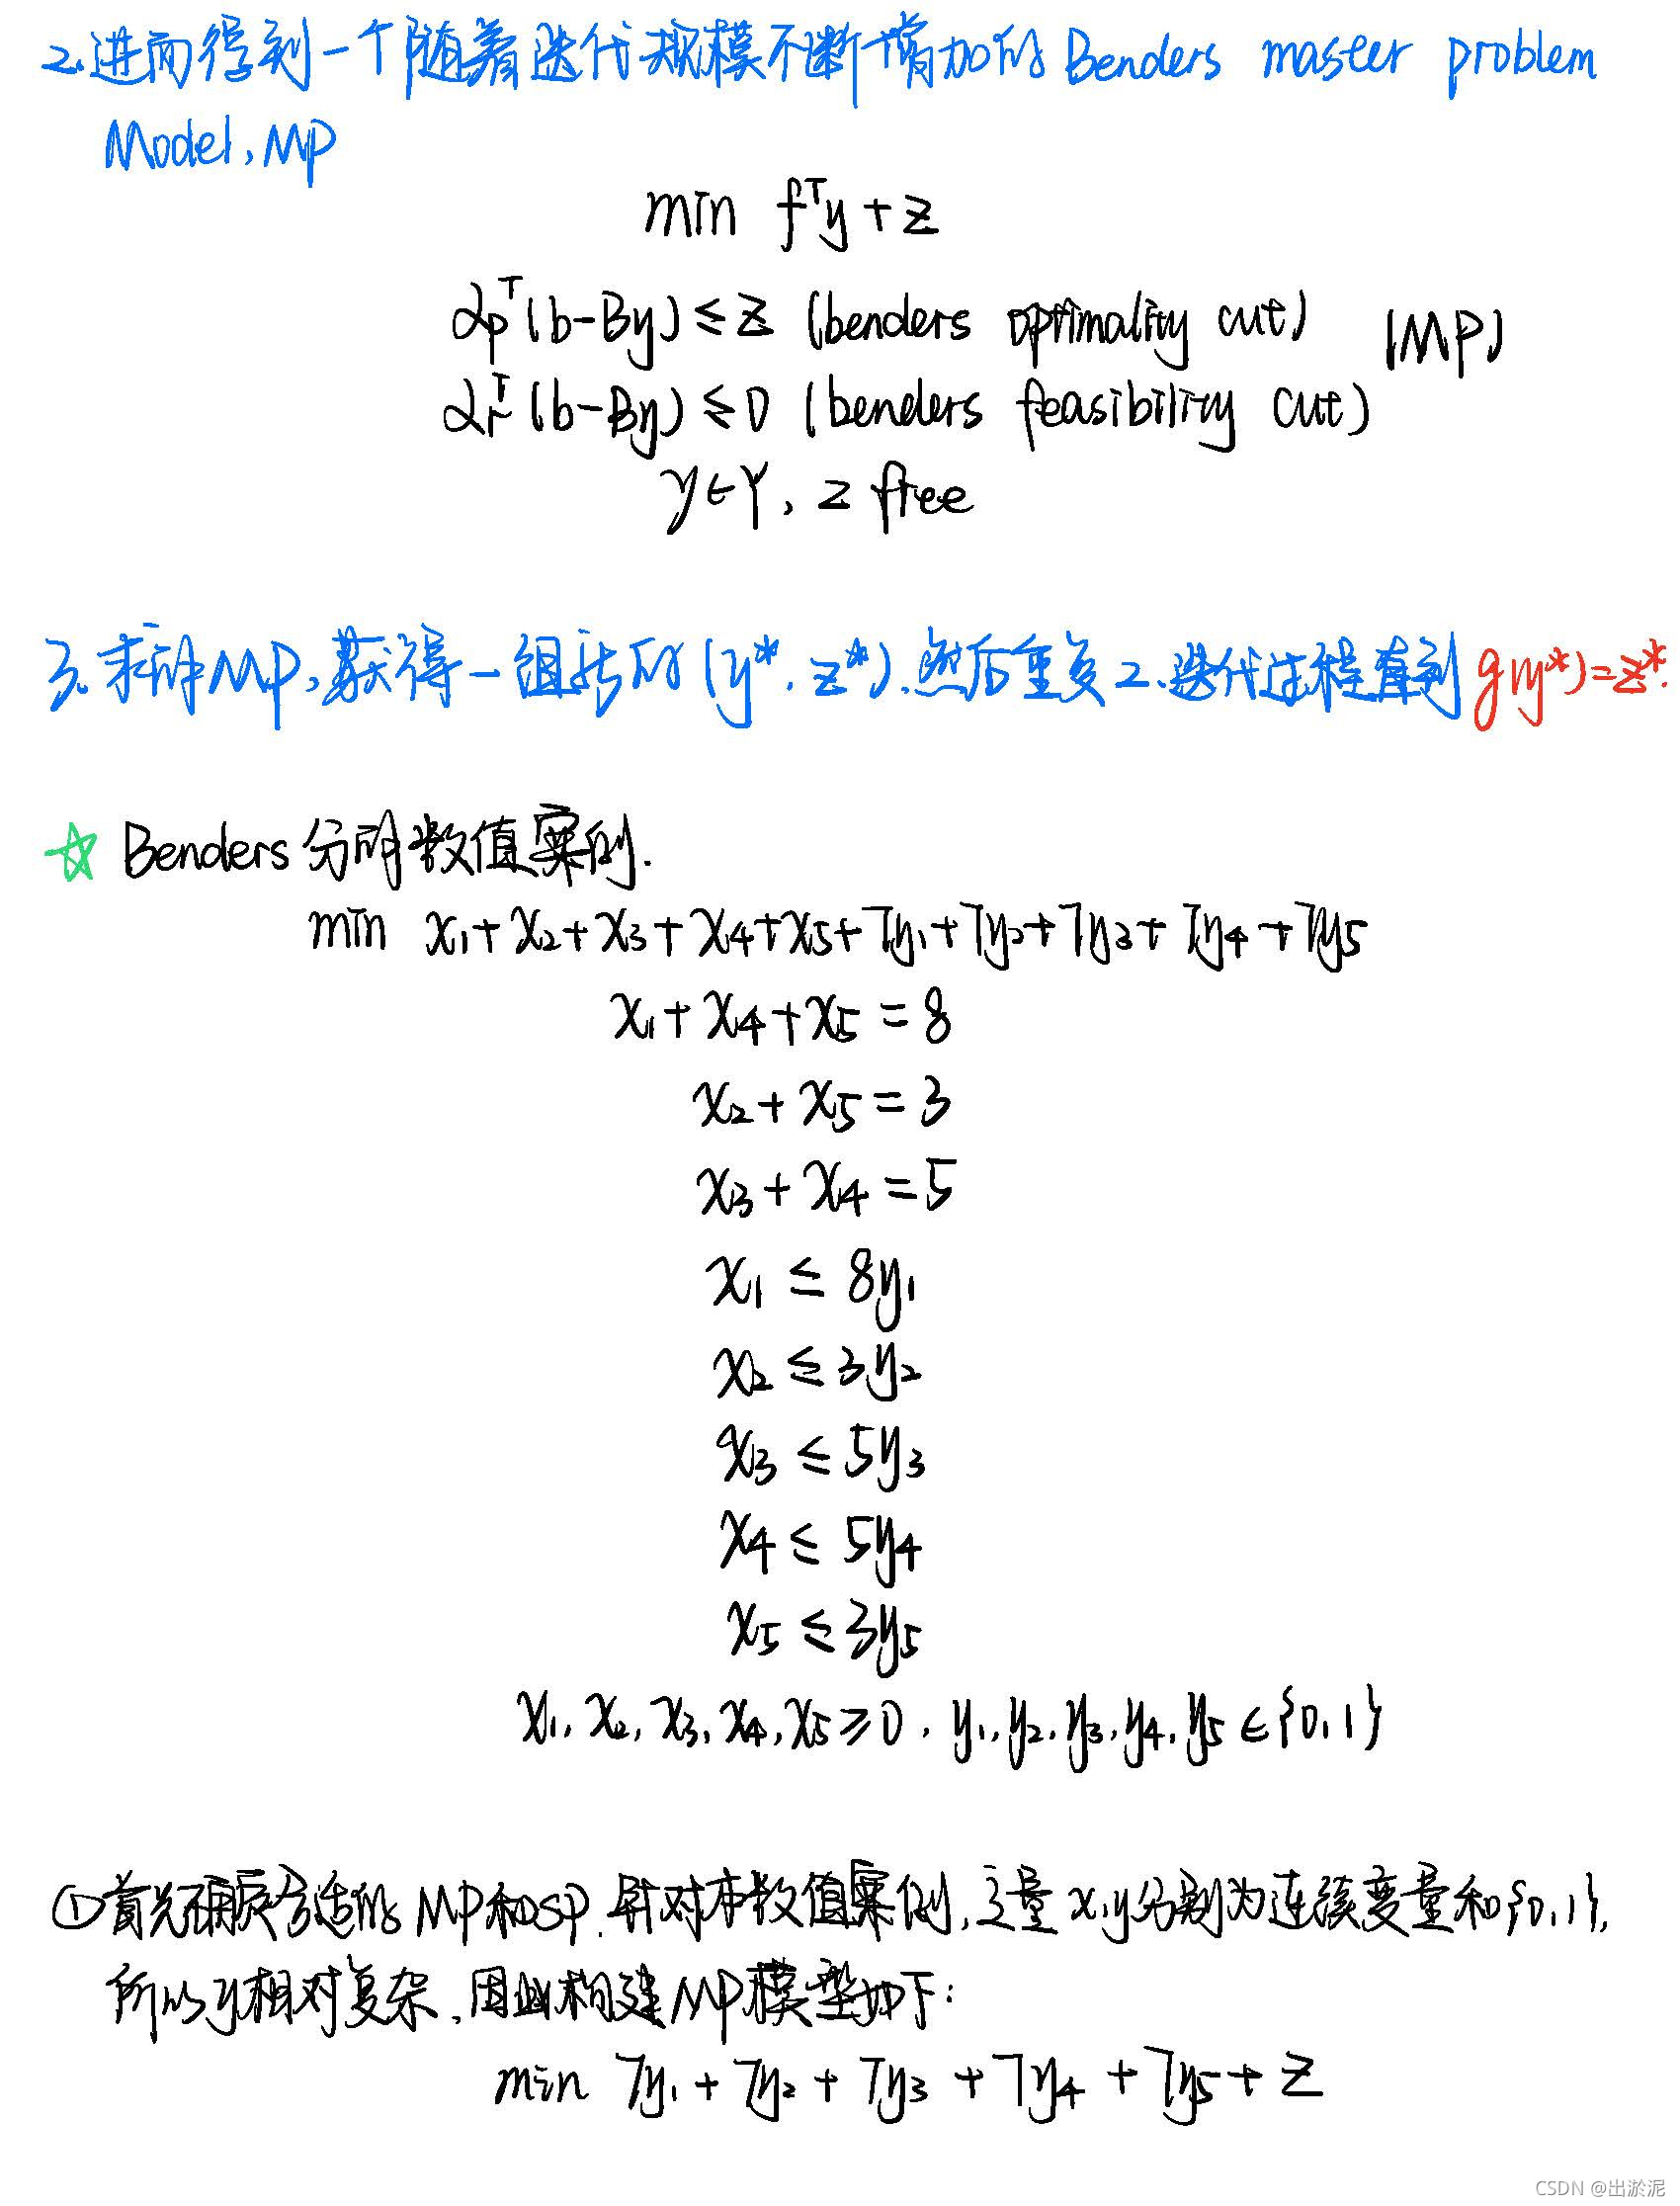 2.进而得到一个随着迭代规模不断增加的Benders master problem
Model,MP
min fᵀy+z
αpᵀ(b-By)≤z (benders optimality cut) (MP)
αrᵀ(b-By)≤0 (benders feasibility cut)
y∈Y, z free
3.求解MP,获得一组新的(y*,z*).然后重复2.迭代过程直到g(y*)=z*.
☆ Benders分解数值案例.
min x1+x2+x3+x4+x5+7y1+7y2+7y3+7y4+7y5
x1+x4+x5=8
x2+x5=3
x3+x4=5
x1≤8y1
x2≤3y2
x3≤5y3
x4≤5y4
x5≤3y5
x1,x2,x3,x4,x5≥0,y1,y2,y3,y4,y5∈{0,1}
①首先确定合适的MP和SP.针对本数值案例,变量x,y分别为连续变量和{0,1},
所以y相对复杂,因此构建MP模型如下:
min 7y1+7y2+7y3+7y4+7y5+z
CSDN @出淤泥